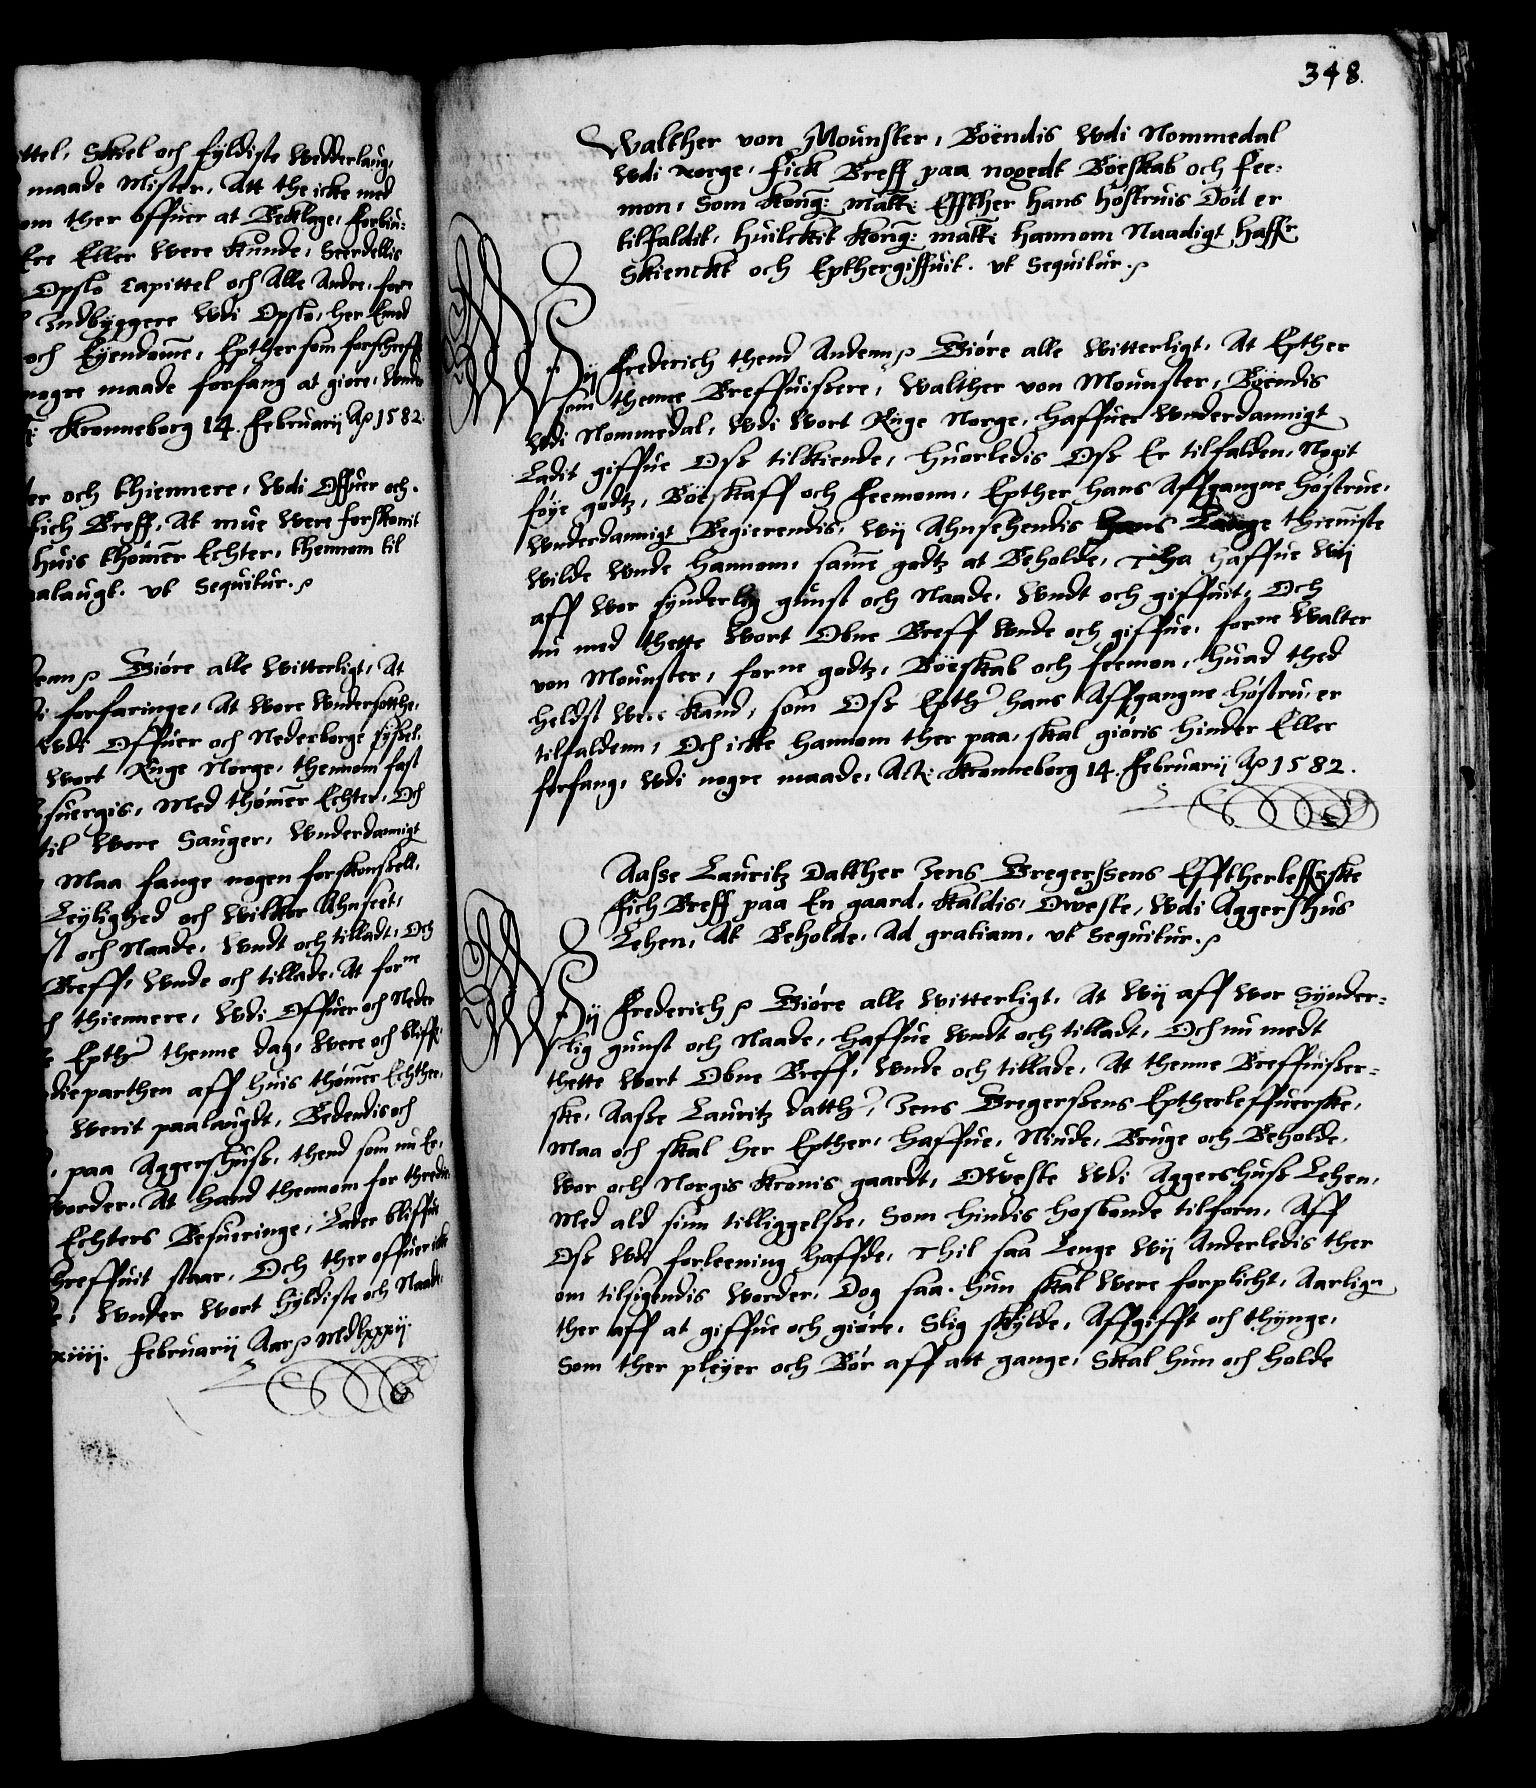 ittel, Skiel och fyldiste Wedderlaug,
maade Mister, Att the icke med
om ther offuer at Beklage, forbiu:
Ere Eller Were kunde, Seerdellis
Opslo Capittel och Alle Andre, forne
Indbyggere Wdi Opslo, her Emod
och Eyendome, Epther som forschreff
nogre maade forfang at giøre, Wnder
Kronneborg 14. februarij Ap 1582.
er och thiennere, Wdi Offuer och.
lich Breff, At mue Were forskonit
huis thomer Echter, thennom til
aalaugt. vt Sequitur.
denn p Giøre alle Witterligt, At
forfaringe, At Wore Wndersotthe,
Wdi Offuer och Nederborge syssel,
Wort Rige Norge, thennom fast
suergis, Med thømer Echter, Och
til Wore Sauger, Wnderdannigt
Maa fange nogen forskonsell,
Leylighed och Wilkor Ahnseet,
st och Naade, Wndt och tilladt, Och
Breff, Wnde och tillade, At forne
thiennere, Wdi Offuer och Neder
Epther thenne dag, Were och bliffe
dieparthen aff huis thømer Echther,
Werit paalaugdt, Bedendis och
paa Aggershuss, thend som nu Er,
Worder, At hand thennom for thredie
Echters Besueringe, Lader bliffue
hreffuit staar, Och ther offuer icke
Wnder Wort hyldiste och Naade,
xiiij. februarij Aar p Mdlxxxij
348.
Walther von Mounster, Boendis Wdi Nommedal
Wdi Norge, fick Breff paa nogedt Boeskab och fee:
mon, Som Kong: Matt: Effther hans høstruis Død er
tilfaldit, huilckit Kong: Matt: hannom Naadigt haffr
Skienckt och Epthergiffuit. vt Sequitur.
Wij Frederich thend Andenn p Giøre alle Witterligt, At Epther
som thenne Breffuissere, Walther von Mounster, Boendis
Wdi Nommedal, Wdi Wort Rige Norge, haffuer Wnderdannigt
Ladit giffue Oss tilkiende, huorledis Oss Er tilfalden, Nogit
føye godtz, Boeskaff och feemonn, Epther hans Affgangne høstrue,
Wnderdannigt Begierendis, Wij Ahnsehendis hans Lange thieniste
Wilde Wnde hannom, same godtz at Beholde, Tha haffue Wij
aff Wor synderlig gunst och Naade, Wndt och giffuit, Och
nu med thette Wort Obne Breff Wnde och giffue, forne Walter
von Mounster, forne godtz, Boeskab och feemon, huad thed
heldst Were kand, som Oss Epther hans Affgangne høstru, er
tilfaldenn, Och icke hannom ther paa, skal giøris hinder Eller
forfang, Wdi nogre maade, Act: Kronneborg 14. februarij Ap 1582.
Aasse Lauritz Datther Jens Gregerssens Efftherleffrske
fich Breff paa En gaard, kaldis, Oweste, Wdi Aggershus
Lehen, At Beholde, Ad gratiam, vt Sequitur.
Wij Frederich p Giøre alle Witterligt, At Wij aff Wor Synder=
lig gunst och Naade, haffue Wndt och tilladt, Och nu medt
thette Wort Obne Breff, Wnde och tillade, At thenne Breffuisser=
ske, Aasse Lauritz datther, Jens Gregerssens Eptherleffuerske,
Maa och skal her Epther, haffue, Niude, Bruge och Beholde,
Wor och Norgis Kronis gaardt, Oweste Wdi Aggershuss Lehen,
Med ald sinn tilliggelsse, Som hindis hosbonde tilforn, Aff
Oss Wdi forleening haffde, Thil saa Lenge Wij Anderledis ther
om tilsigendis Worder, Dog saa, hun skal Were forplicht, Aarligen
ther aff at giffue och giøre, Slig skylde, Affgifft och thynge,
Som ther pleyer och Bør aff att gange, Skal hun och holde